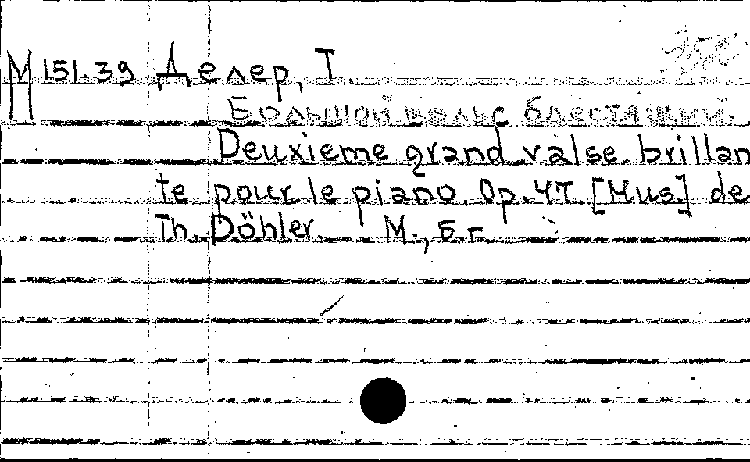 М 151.39 Делер, Т.
Большой вальс блестящий.
Deuxieme grand valse brillan
te pour le piano Op. 47 [Mus.] de
Th. Döhler М., б г.